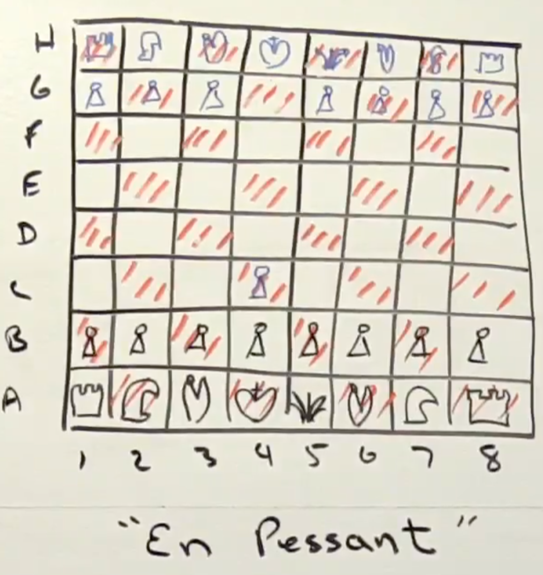 H
G
F
E
D
C
B
A
1 2 3 4 5 6 7 8
"En Pessant"